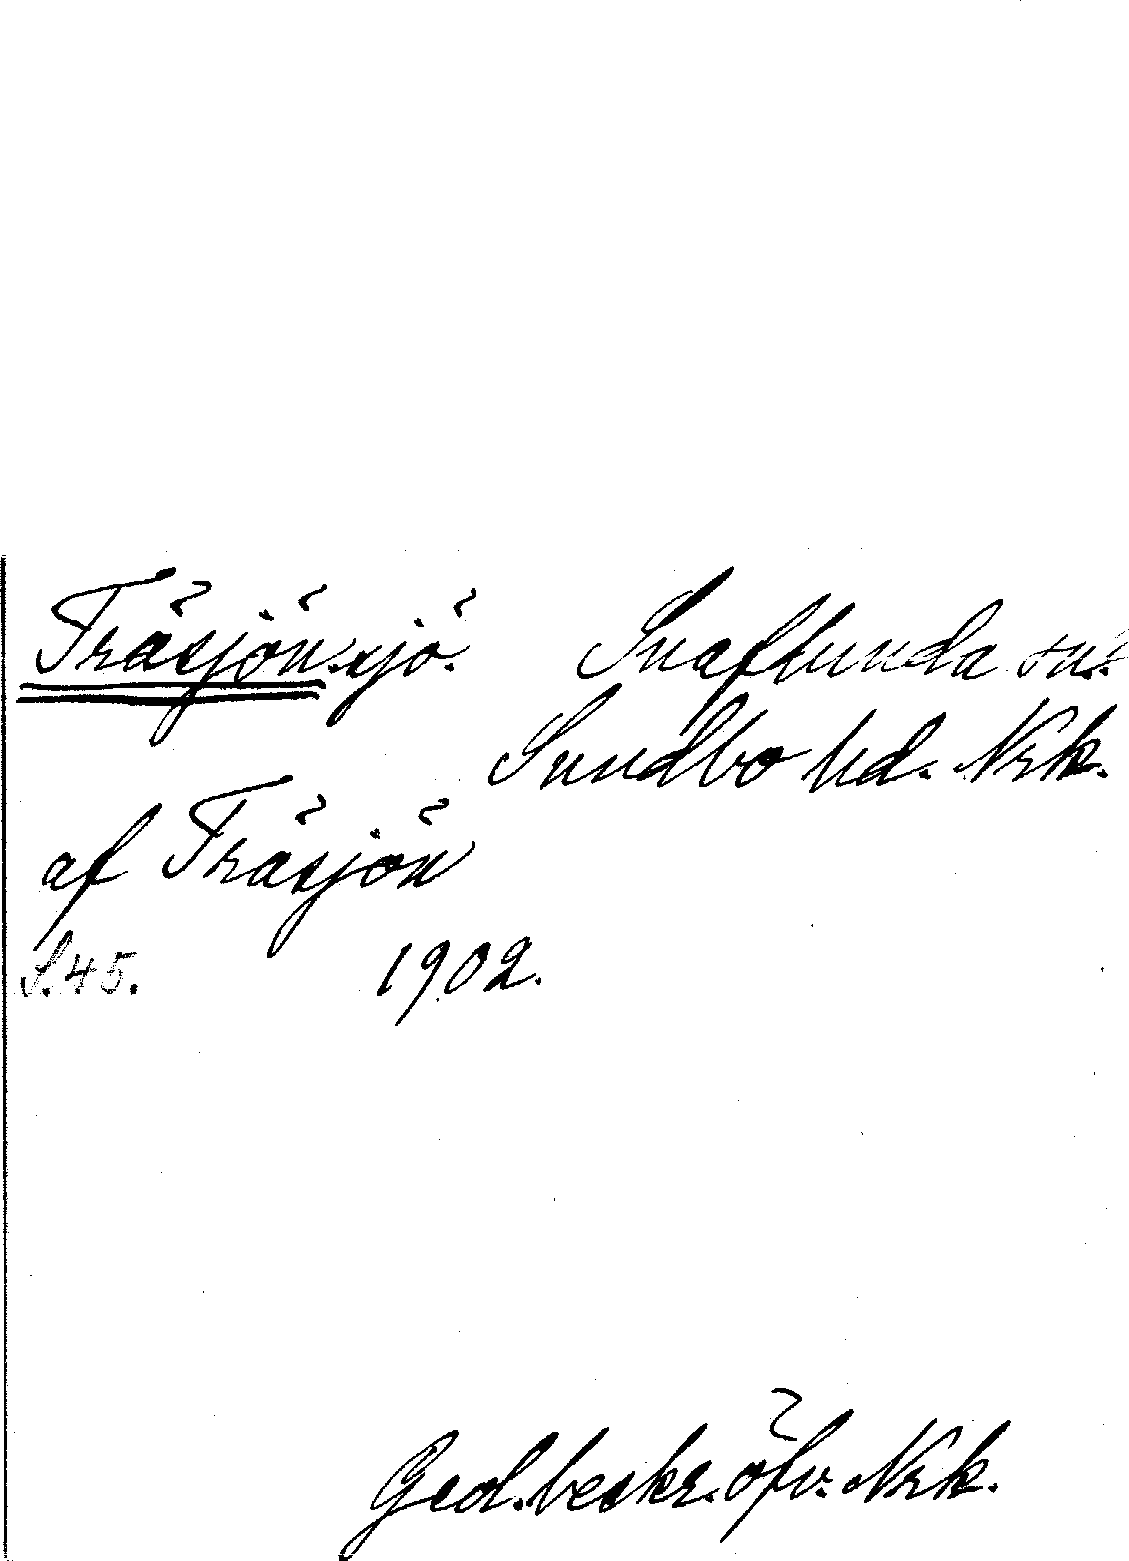 Träsjön. sjö. Snaflunda sn.
Sundbo hd. Nrk.
af Träsjön
S. 45. 1902.
Ged. beskr. öfv. Nrk.